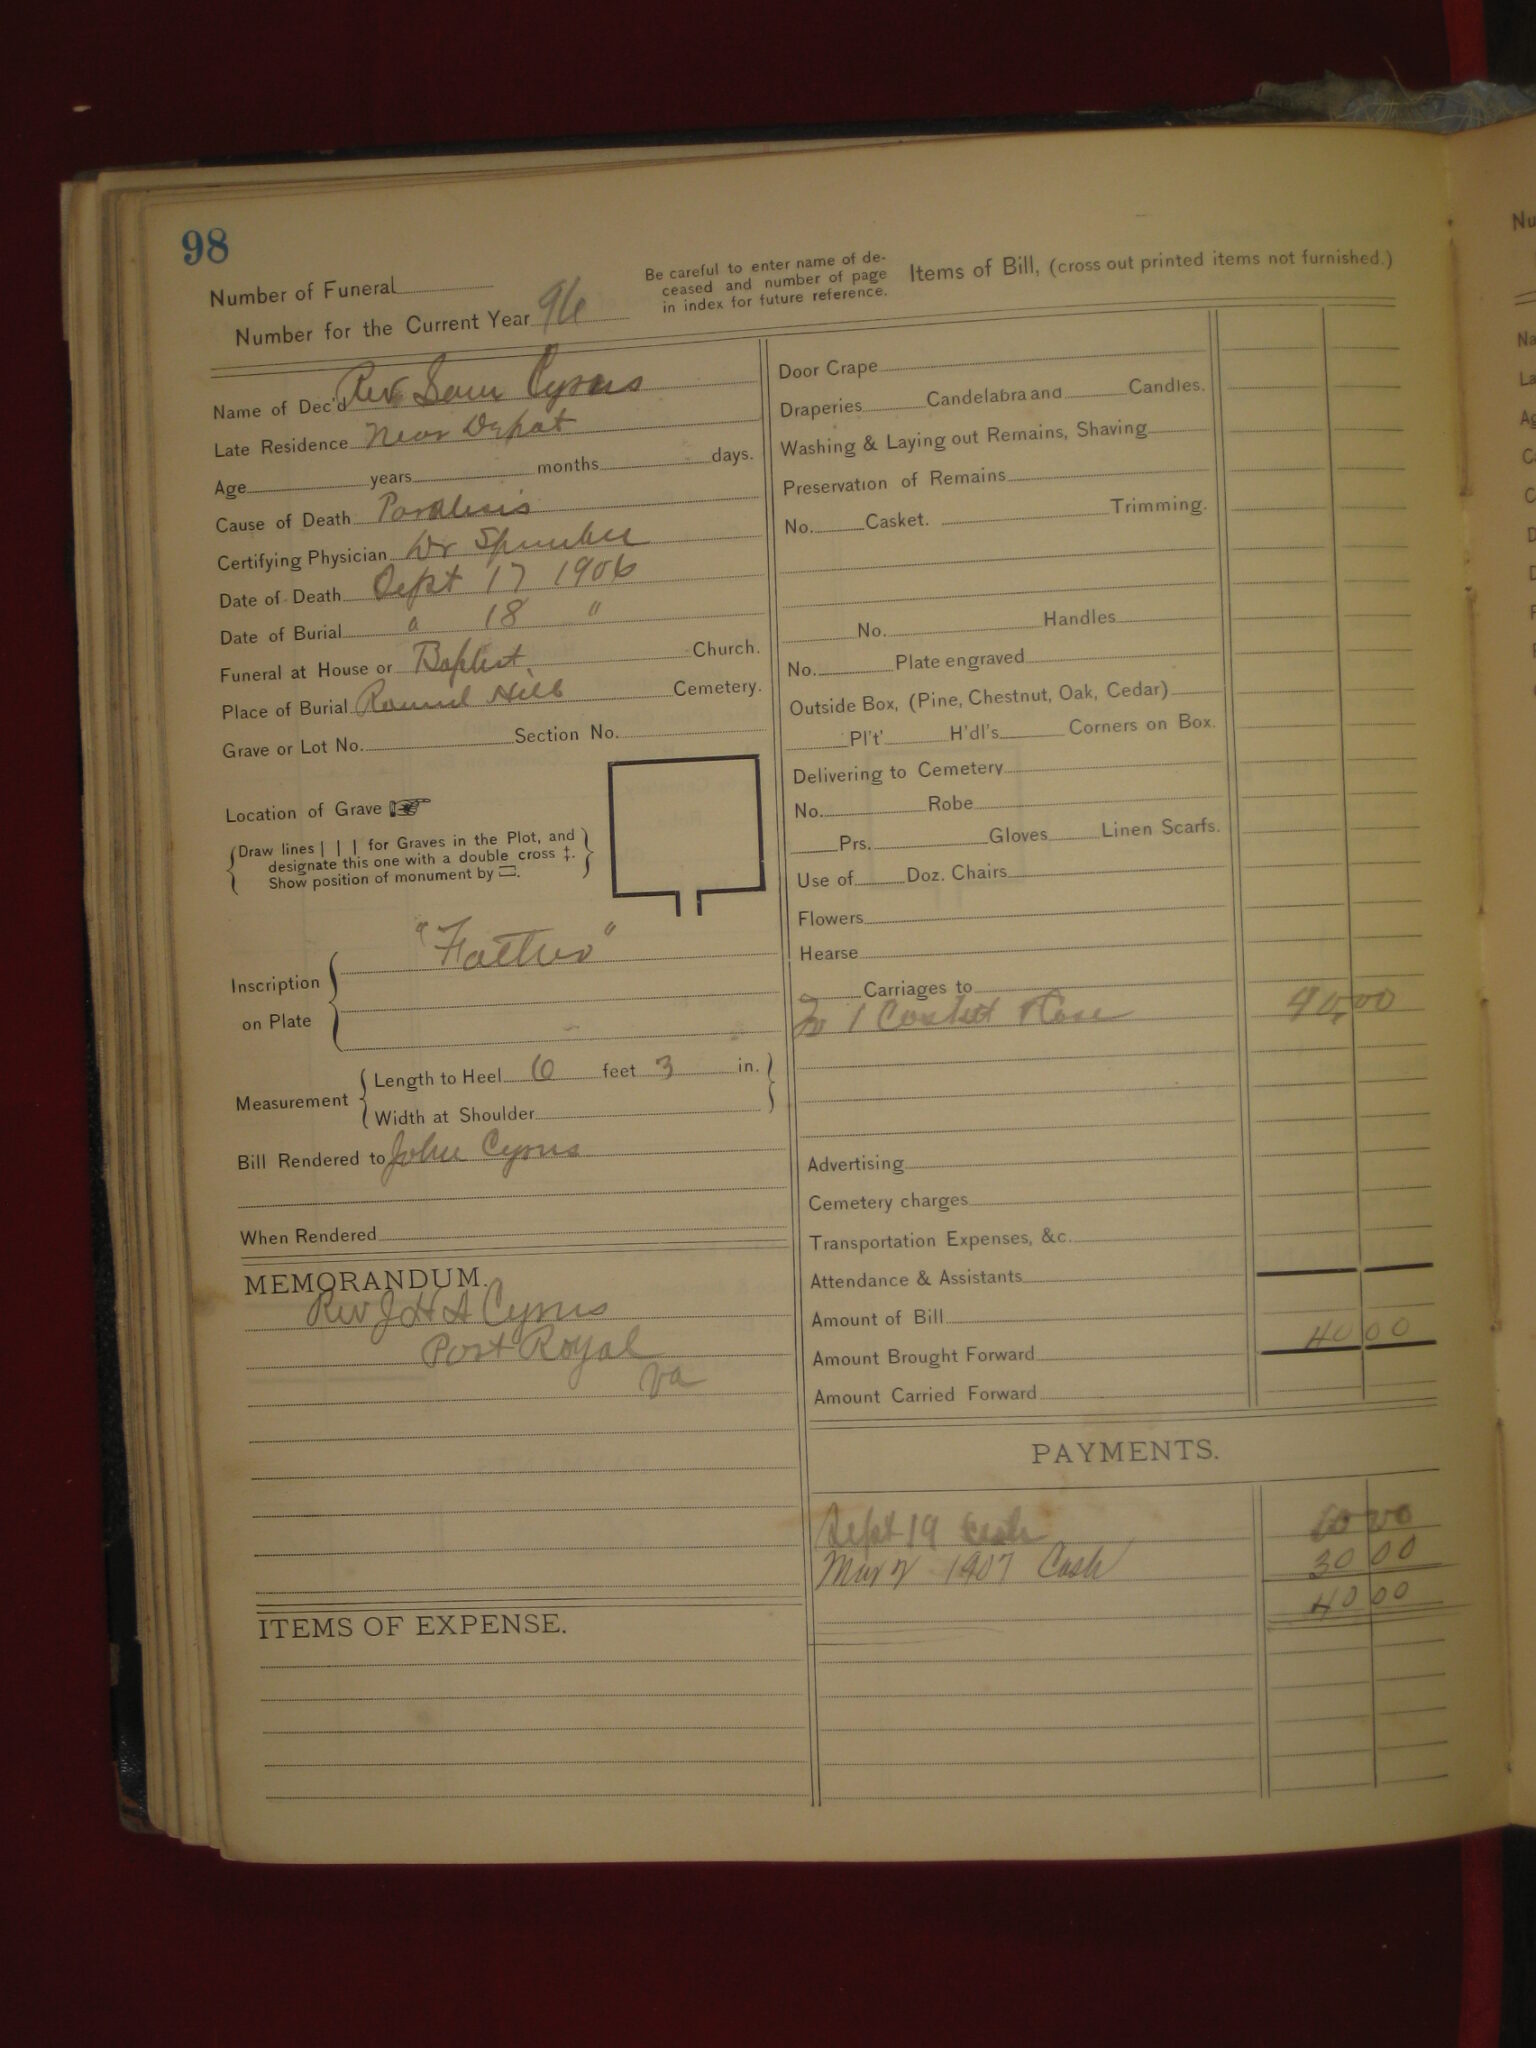 98
Number of Funeral
Number for the Current Year 96
Be careful to enter name of de-
ceased and number of page
in index for future reference.
Items of Bill, (cross out printed items not furnished.)
Name of Dec'd Rev Sam Cyrus
Late Residence Near Depot
Age years months days.
Cause of Death Paralisis
Certifying Physician Dr
Date of Death Sept 17 1906
Date of Burial " 18 "
Funeral at House or Baptist Church.
Place of Burial Round Hill Cemetery.
Grave or Lot No. Section No.
Location of Grave
Draw lines | | | for Graves in the Plot, and
designate this one with a double cross ‡.
Show position of monument by ▭.
Inscription
on Plate
"Father"
Measurement
Length to Heel 6 feet 3 in.
Width at Shoulder
Bill Rendered to John Cyrus
When Rendered
MEMORANDUM.
Rev J H A Cyrus
Port Royal
Va
ITEMS OF EXPENSE.
Door Crape
Draperies Candelabra and Candles.
Washing & Laying out Remains, Shaving
Preservation of Remains
No. Casket. Trimming.
No. Handles
No. Plate engraved
Outside Box, (Pine, Chestnut, Oak, Cedar)
Pl't' H'dl's Corners on Box.
Delivering to Cemetery
No. Robe
Prs. Gloves Linen Scarfs.
Use of Doz. Chairs
Flowers
Hearse
Carriages to
To 1 Caskett & Case 40.00
Advertising
Cemetery charges
Transportation Expenses, &c.
Attendance & Assistants
Amount of Bill
Amount Brought Forward 40 00
Amount Carried Forward
PAYMENTS.
Sept 19 Cash 10 00
Mar 2 1907 Cash 30 00
40 00